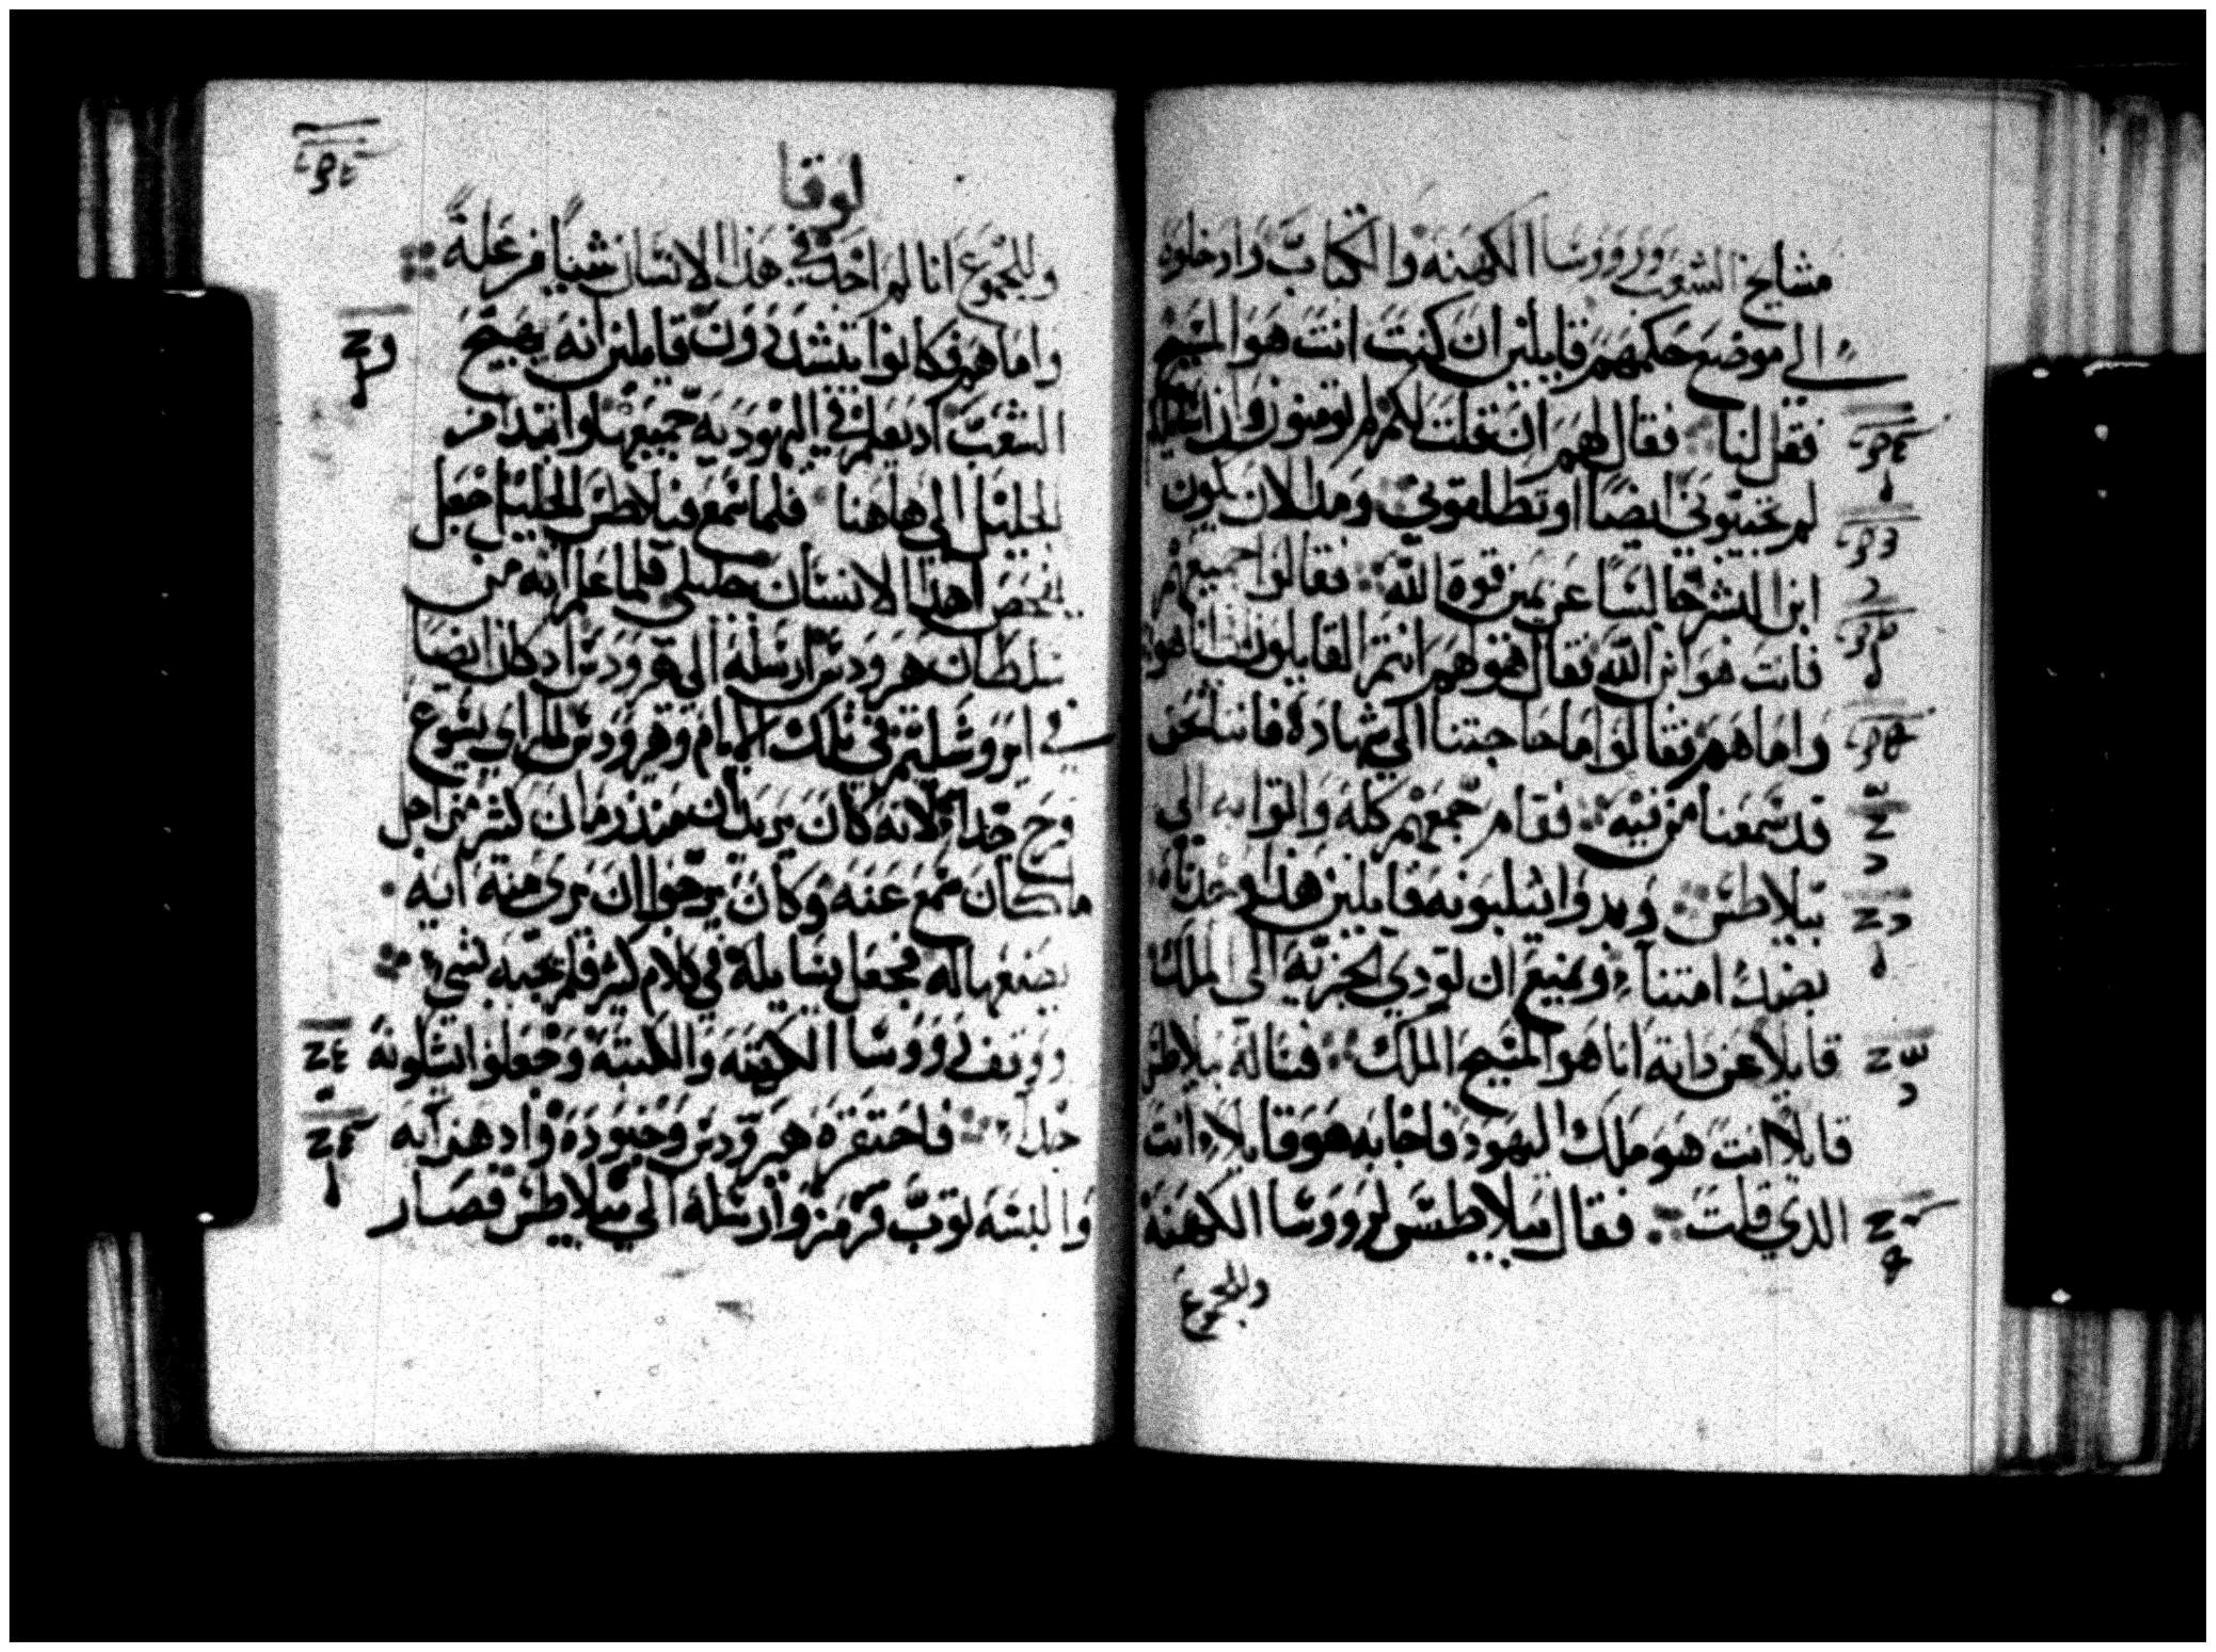 مشايخ الشعب ورووسا الكهنه والكتاب وادخلوه
الي موضع حكمهم قايلين ان كنت انت هو المسيح
فقل لنا فقال لهم ان قلت لكم لم تومنون وان
لم تجيبوني ايضا او تطلقوني ومد الان يكون
ابن البشر جالسا عن يمين قوة الله فقالوا جميعهم
فانت هو ابن الله فقال نحوهم انتم القايلون انني انا هو
واما هم فقالوا ما حاجتنا الي شهادة فاننا نحن
قد سمعنا من فيه فقام جمعهم كله واتوا به الي
بيلاطس وبدوا يثلبونه قايلين هذا وجدناه
يضل امتنا ويمنع ان تودي الجزية الي الملك
قايلا عن ذاته انا هو المسيح الملك فساله بيلاطس
قايلا انت هو ملك اليهود فاجابه هو قايلا انت
الذي قلت فقال بيلاطس لرووسا الكهنة
وللجموع
لوقا
وللجموع انا لم اجد في هذا الانسان شيئا من علة
واما هم فكانوا يتشددون قايلين انه يهيج
الشعب اذ يعلم في اليهودية جميعها وابتدا من
الجليل الي هاهنا فلما سمع فيلاطس الجليل جعل
يفحص اهذا الانسان جليلي فلما علم انه من
سلطان هرودس ارسله الي هرودس اذ كان ايضا
في ايروشليم في تلك الايام وهرودس لما راي يسوع
فرح جدا لانه كان يريد ان منذ زمان كثير من اجل
ما كان سمع عنه وكان يرجوا ان يرى منه اية
يصنعها له فجعل يسايله في كلام كثير فلم يجبه بشي
ووقف روسا الكهنة والكتبة وجعلوا يثلبونه
جدا فاحتقره هرودس وجنوده واذ هزا به
والبسه ثوب قرمز وارسله الي بيلاطس فصار